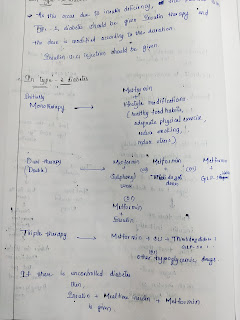 → As this occur due to insulin deficiency,
type-1 diabetes should be given Insulin therapy and
the dose is modified according to the duration.
Insulin injection should be given.
In type-2 diabetes
Initially
Monotherapy → Metformin
+
Lifestyle modifications
( healthy food habits,
adequate physical exercise,
reduce smoking,
reduce stress)
Dual therapy → Metformin (or) Metformin (or) Metformin
(Double)
+ + +
Sulphonyl
urea
(or)
Metformin
+
Insulin
Triple therapy → Metformin + SU + Thiazolidinedione /
other hypoglycemic drugs.
If there is uncontrolled diabetes
then,
Insulin + Mealtime insulin + Metformin
is given.